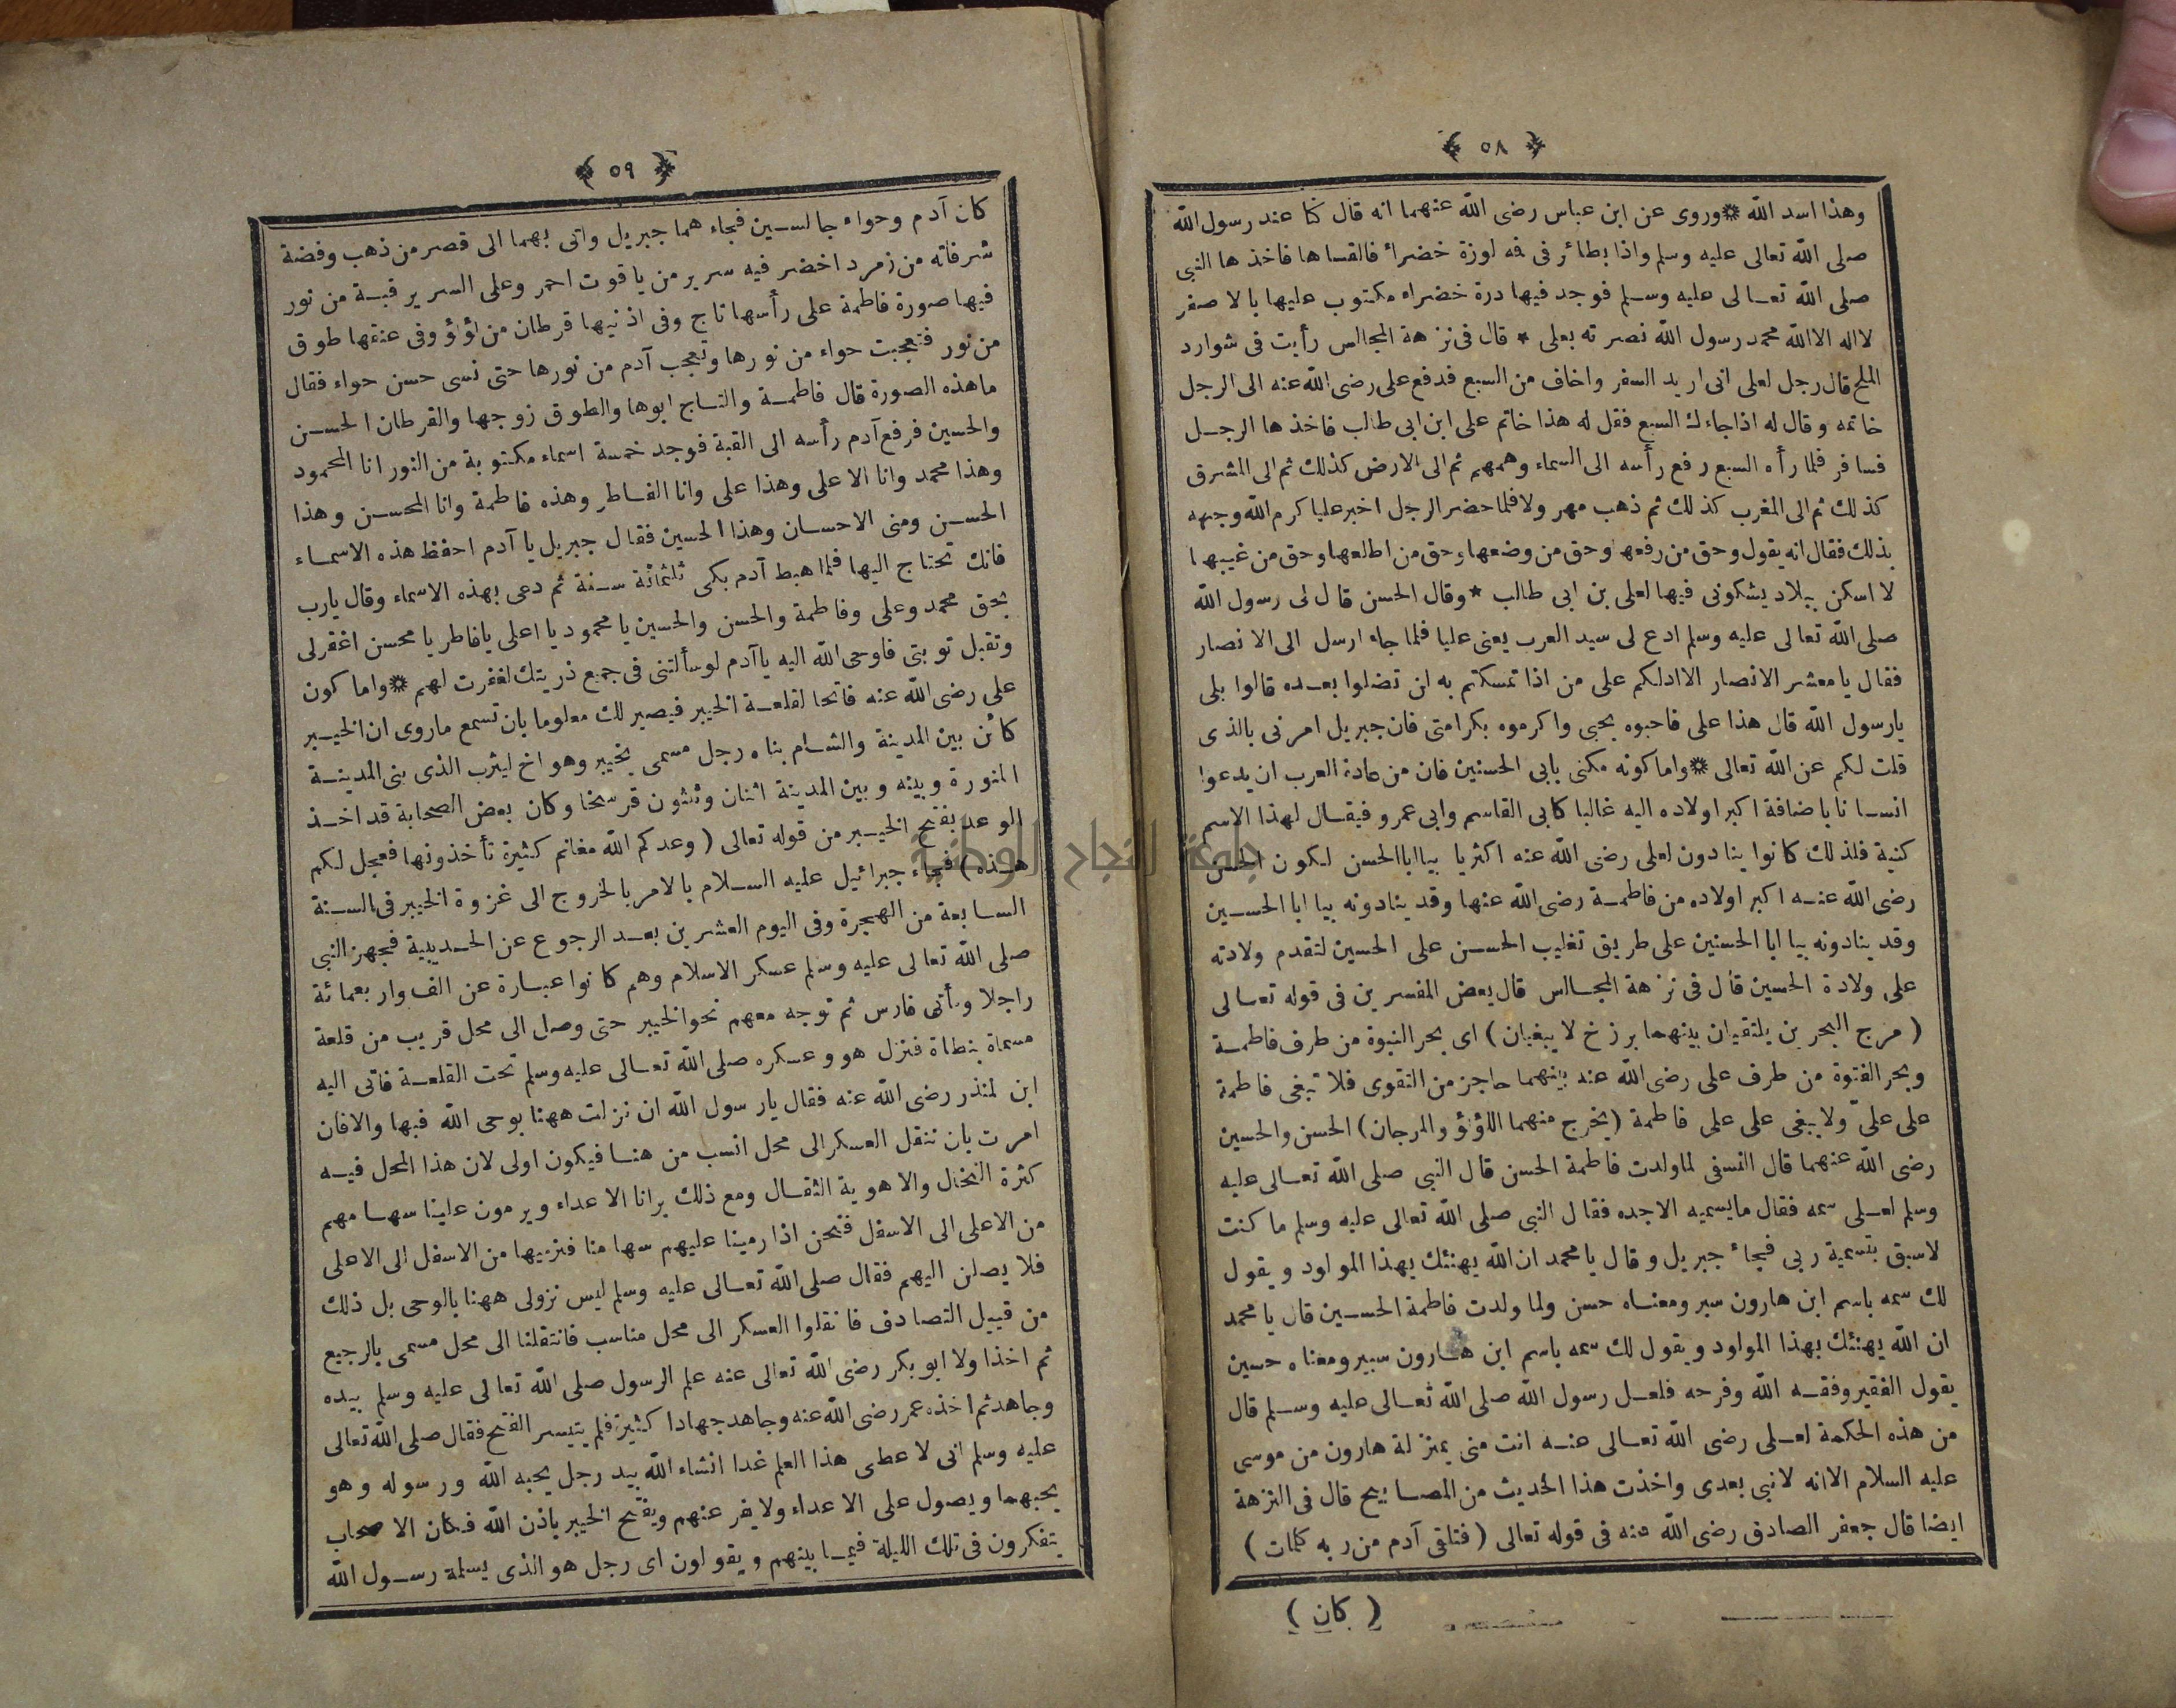 ﴿ ٥٨ ﴾
وهذا اسد الله * وروى عن ابن عباس رضى الله عنهما انه قال كنا عند رسول الله
صلى الله تعالى عليه وسلم واذا بطائر فى فه لوزة خضراء فالقاها فاخذها النبى
صلى الله تعالى عليه وسلم فوجد فيها درة خضراء مكتوب عليها بالاصفر
لااله الاالله محمد رسول الله نصرته بعلى * قال فى نزهة المجالس رأيت فى شوارد
الملح قال رجل لعلى انى اريد السفر واخاف من السبع فدفع على رضى الله عنه الى الرجل
خاتمه وقال له اذا جاءك السبع فقل له هذا خاتم على ابن ابى طالب فاخذها الرجل
فسافر فلما رأه السبع رفع رأسه الى السماء وهمهم ثم الى الارض كذلك ثم الى المشرق
كذلك ثم الى المغرب كذلك ثم ذهب مهرولا فلما حضر الرجل اخبر عليا كرم الله وجهه
بذلك فقال انه يقول وحق من رفعها وحق من وضعها وحق من اطلعها وحق من غيبها
لا اسكن ببلاد يشكونى فيها لعلى بن ابى طالب * وقال الحسن قال لى رسول الله
صلى الله تعالى عليه وسلم ادع لى سيد العرب يعنى عليا فلما جاء ارسل الى الانصار
فقال يا معشر الانصار الا ادلكم على من اذا تمسكتم به لن تضلوا بعده قالوا بلى
يارسول الله قال هذا على فاحبوه بحبى واكرموه بكرامتى فان جبريل امرنى بالذى
قلت لكم عن الله تعالى * واما كونه مكنى بابى الحسنين فان من عادة العرب ان يدعوا
انسانا باضافة اكبر اولاده اليه غالبا كابى القاسم وابى عمرو فيقال لهذا الاسم
كنية فلذلك كانوا ينادون لعلى رضى الله عنه اكثريا بيا ابا الحسن لكون الحسن
رضى الله عنه اكبر اولاده من فاطمة رضى الله عنها وقد ينادونه بيا ابا الحسين
وقد ينادونه بيا ابا الحسنين على طريق تغليب الحسن على الحسين لتقدم ولادته
على ولادة الحسين قال فى نزهة المجالس قال بعض المفسرين فى قوله تعالى
( مرج البحرين يلتقيان بينهما برزخ لا يبغيان ) اى بحر النبوة من طرف فاطمة
وبحر الفتوة من طرف على رضى الله عنه بينهما حاجز من التقوى فلا تبغى فاطمة
على علىّ ولا يبغى على على فاطمة ( يخرج منهما اللؤلؤ والمرجان ) الحسن والحسين
رضى الله عنهما قال النسفى لما ولدت فاطمة الحسن قال النبى صلى الله تعالى عليه
وسلم لعلى سمه فقال مايسميه الاجده فقال النبى صلى الله تعالى عليه وسلم ما كنت
لاسبق بتسمية ربى فجاء جبريل وقال يا محمد ان الله يهنئك بهذا المولود ويقول
لك سمه باسم ابن هارون سبر ومعناه حسن ولما ولدت فاطمة الحسين قال يا محمد
ان الله يهنئك بهذا المولود ويقول لك سمه باسم ابن هارون سبير ومعناه حسين
يقول الفقير وفقه الله وفرحه فلعل رسول الله صلى الله تعالى عليه وسلم قال
من هذه الحكمة لعلى رضى الله تعالى عنه انت منى بمنزلة هارون من موسى
عليه السلام الاانه لانبى بعدى واخذت هذا الحديث من المصابيح قال فى النزهة
ايضا قال جعفر الصادق رضى الله عنه فى قوله تعالى ( فتلقى آدم من ربه كلمات )
( كان )
﴿ ٥٩ ﴾
كان آدم وحواء جالسين فجاءهما جبريل واتى بهما الى قصر من ذهب وفضة
شرفاته من زمرد اخضر فيه سرير من ياقوت احمر وعلى السرير قبة من نور
فيها صورة فاطمة على رأسها تاج وفى اذنيها قرطان من لؤلؤ وفى عنقها طوق
من نور فتعجبت حواء من نورها وتعجب آدم من نورها حتى نسى حسن حواء فقال
ماهذه الصورة قال فاطمة والتاج ابوها والطوق زوجها والقرطان الحسن
والحسين فرفع آدم رأسه الى القبة فوجد خمسة اسماء مكتوبة من النور انا المحمود
وهذا محمد وانا الاعلى وهذا على وانا الفاطر وهذه فاطمة وانا المحسن وهذا
الحسن ومنى الاحسان وهذا الحسين فقال جبريل يا آدم احفظ هذه الاسماء
فانك تحتاج اليها فلما هبط آدم بكى ثلثمائة سنة ثم دعى بهذه الاسماء وقال يارب
بحق محمد وعلى وفاطمة والحسن والحسين يا محمود يا اعلى يافاطر يا محسن اغفرلى
وتقبل توبتى فاوحى الله اليه يا آدم لوسألتنى فى جميع ذريتك لغفرت لهم * واما كون
على رضى الله عنه فاتحا لقلعة الخيبر فيصير لك معلوما بان تسمع ماروى ان الخيبر
كائن بين المدينة والشام بناه رجل مسمى بخيبر وهو اخ ليثرب الذى بنى المدينة
المنورة وبينه وبين المدينة اثنان وثلثون فرسخا وكان بعض الصحابة قد اخذ
الوعد بفتح الخيبر من قوله تعالى ( وعدكم الله مغانم كثيرة تأخذونها فعجل لكم
هذه ) فجاء جبرائيل عليه السلام بالامر بالخروج الى غزوة الخيبر فى السنة
السابعة من الهجرة وفى اليوم العشرين بعد الرجوع عن الحديبية فجهز النبى
صلى الله تعالى عليه وسلم عسكر الاسلام وهم كانوا عبارة عن الف واربعمائة
راجلا ومأتى فارس ثم توجه معهم نحو الخيبر حتى وصل الى محل قريب من قلعة
مسماة بنطاة فنزل هو وعسكره صلى الله تعالى عليه وسلم تحت القلعة فاتى اليه
ابن لمنذر رضى الله عنه فقال يارسول الله ان نزلت ههنا بوحى الله فبها والافان
امرت بان ننقل العسكر الى محل انسب من هنا فيكون اولى لان هذا المحل فيه
كثرة النخل والاهوية الثقال ومع ذلك يرانا الاعداء ويرمون علينا سهامهم
من الاعلى الى الاسفل فنحن اذا رمينا عليهم سهامنا فنرميها من الاسفل الى الاعلى
فلا يصلن اليهم فقال صلى الله تعالى عليه وسلم ليس نزولى ههنا بالوحى بل ذلك
من قبيل التصادف فانقلوا العسكر الى محل مناسب فانتقلنا الى محل مسمى بالرجيع
ثم اخذا ولا ابو بكر رضى الله تعالى عنه علم الرسول صلى الله تعالى عليه وسلم بيده
وجاهد ثم اخذه عمر رضى الله عنه وجاهد جهادا كثيرة فلم يتيسر الفتح فقال صلى الله تعالى
عليه وسلم انى لاعطى هذا العلم غدا انشاء الله بيد رجل يحبه الله ورسوله وهو
يحبهما ويصول على الاعداء ولا يفر عنهم ويفتح الخيبر باذن الله فكان الاصحاب
يتفكرون فى تلك الليلة فيما بينهم ويقولون اى رجل هو الذى يسلمه رسول الله
جامعة النجاح الوطنية